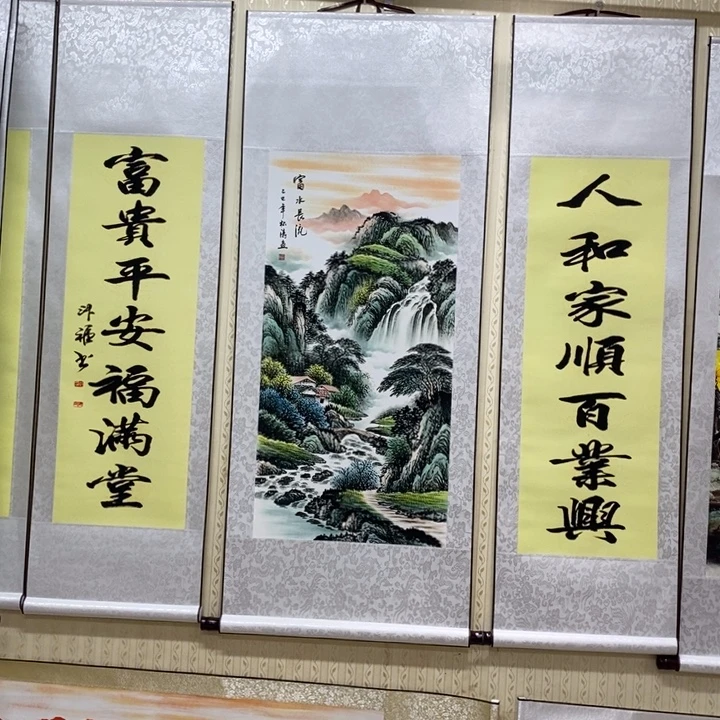 人和家順百業興
富水長流
富貴平安福滿堂